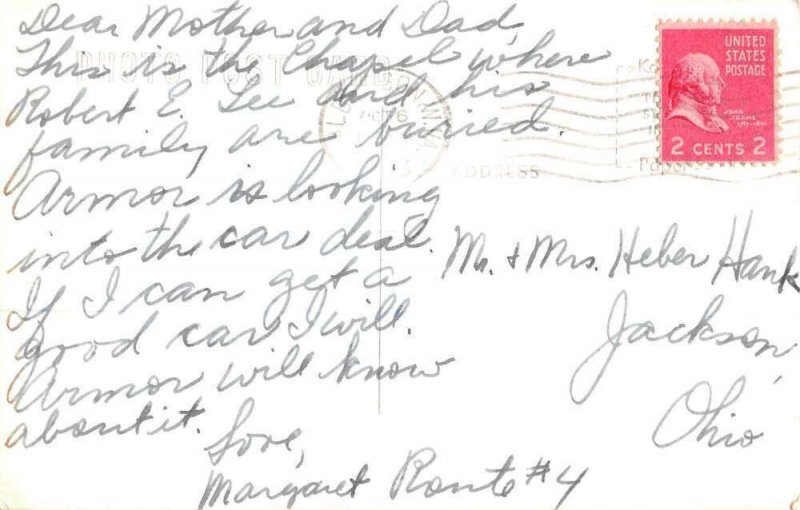 Dear Mother and Dad,
This is the Chapel where
Robert E. Lee and his
family are buried.
Armor is looking
into the car deal.
If I can get a
good car I will.
Armor will know
about it.
Love,
Margaret
Mr. & Mrs. Heber Hank
Jackson,
Ohio
Route #4
PHOTO POST CARD
ADDRESS
UNITED
STATES
POSTAGE
JOHN
ADAMS
2 CENTS 2